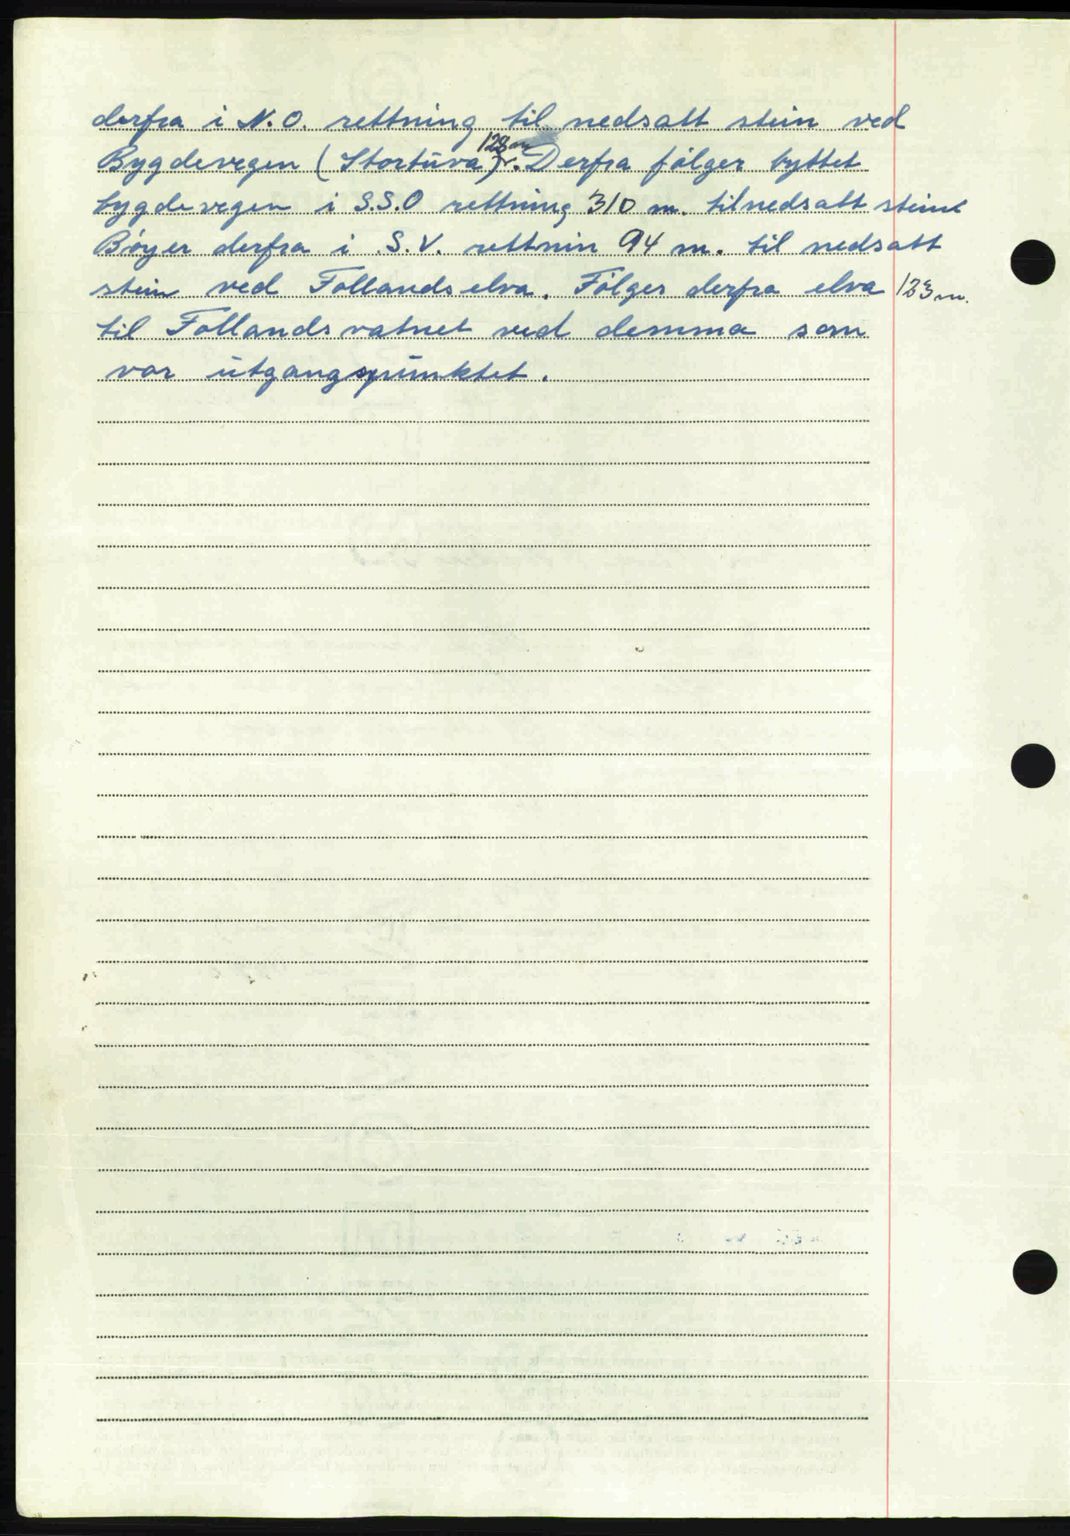 derfra i N.O. rettning til nedsatt stein ved
Bygdevegen (Stortuva) 128 m. Derfra følger byttet
bygdevegen i S.S.O rettning 310 m. til nedsatt stein
Bøyer derfra i S.V. rettnin 94 m. til nedsatt
stein ved Follandselva. Følger derfra elva 123 m.
til Follandsvatnet ved demma som
var utgangspunktet.